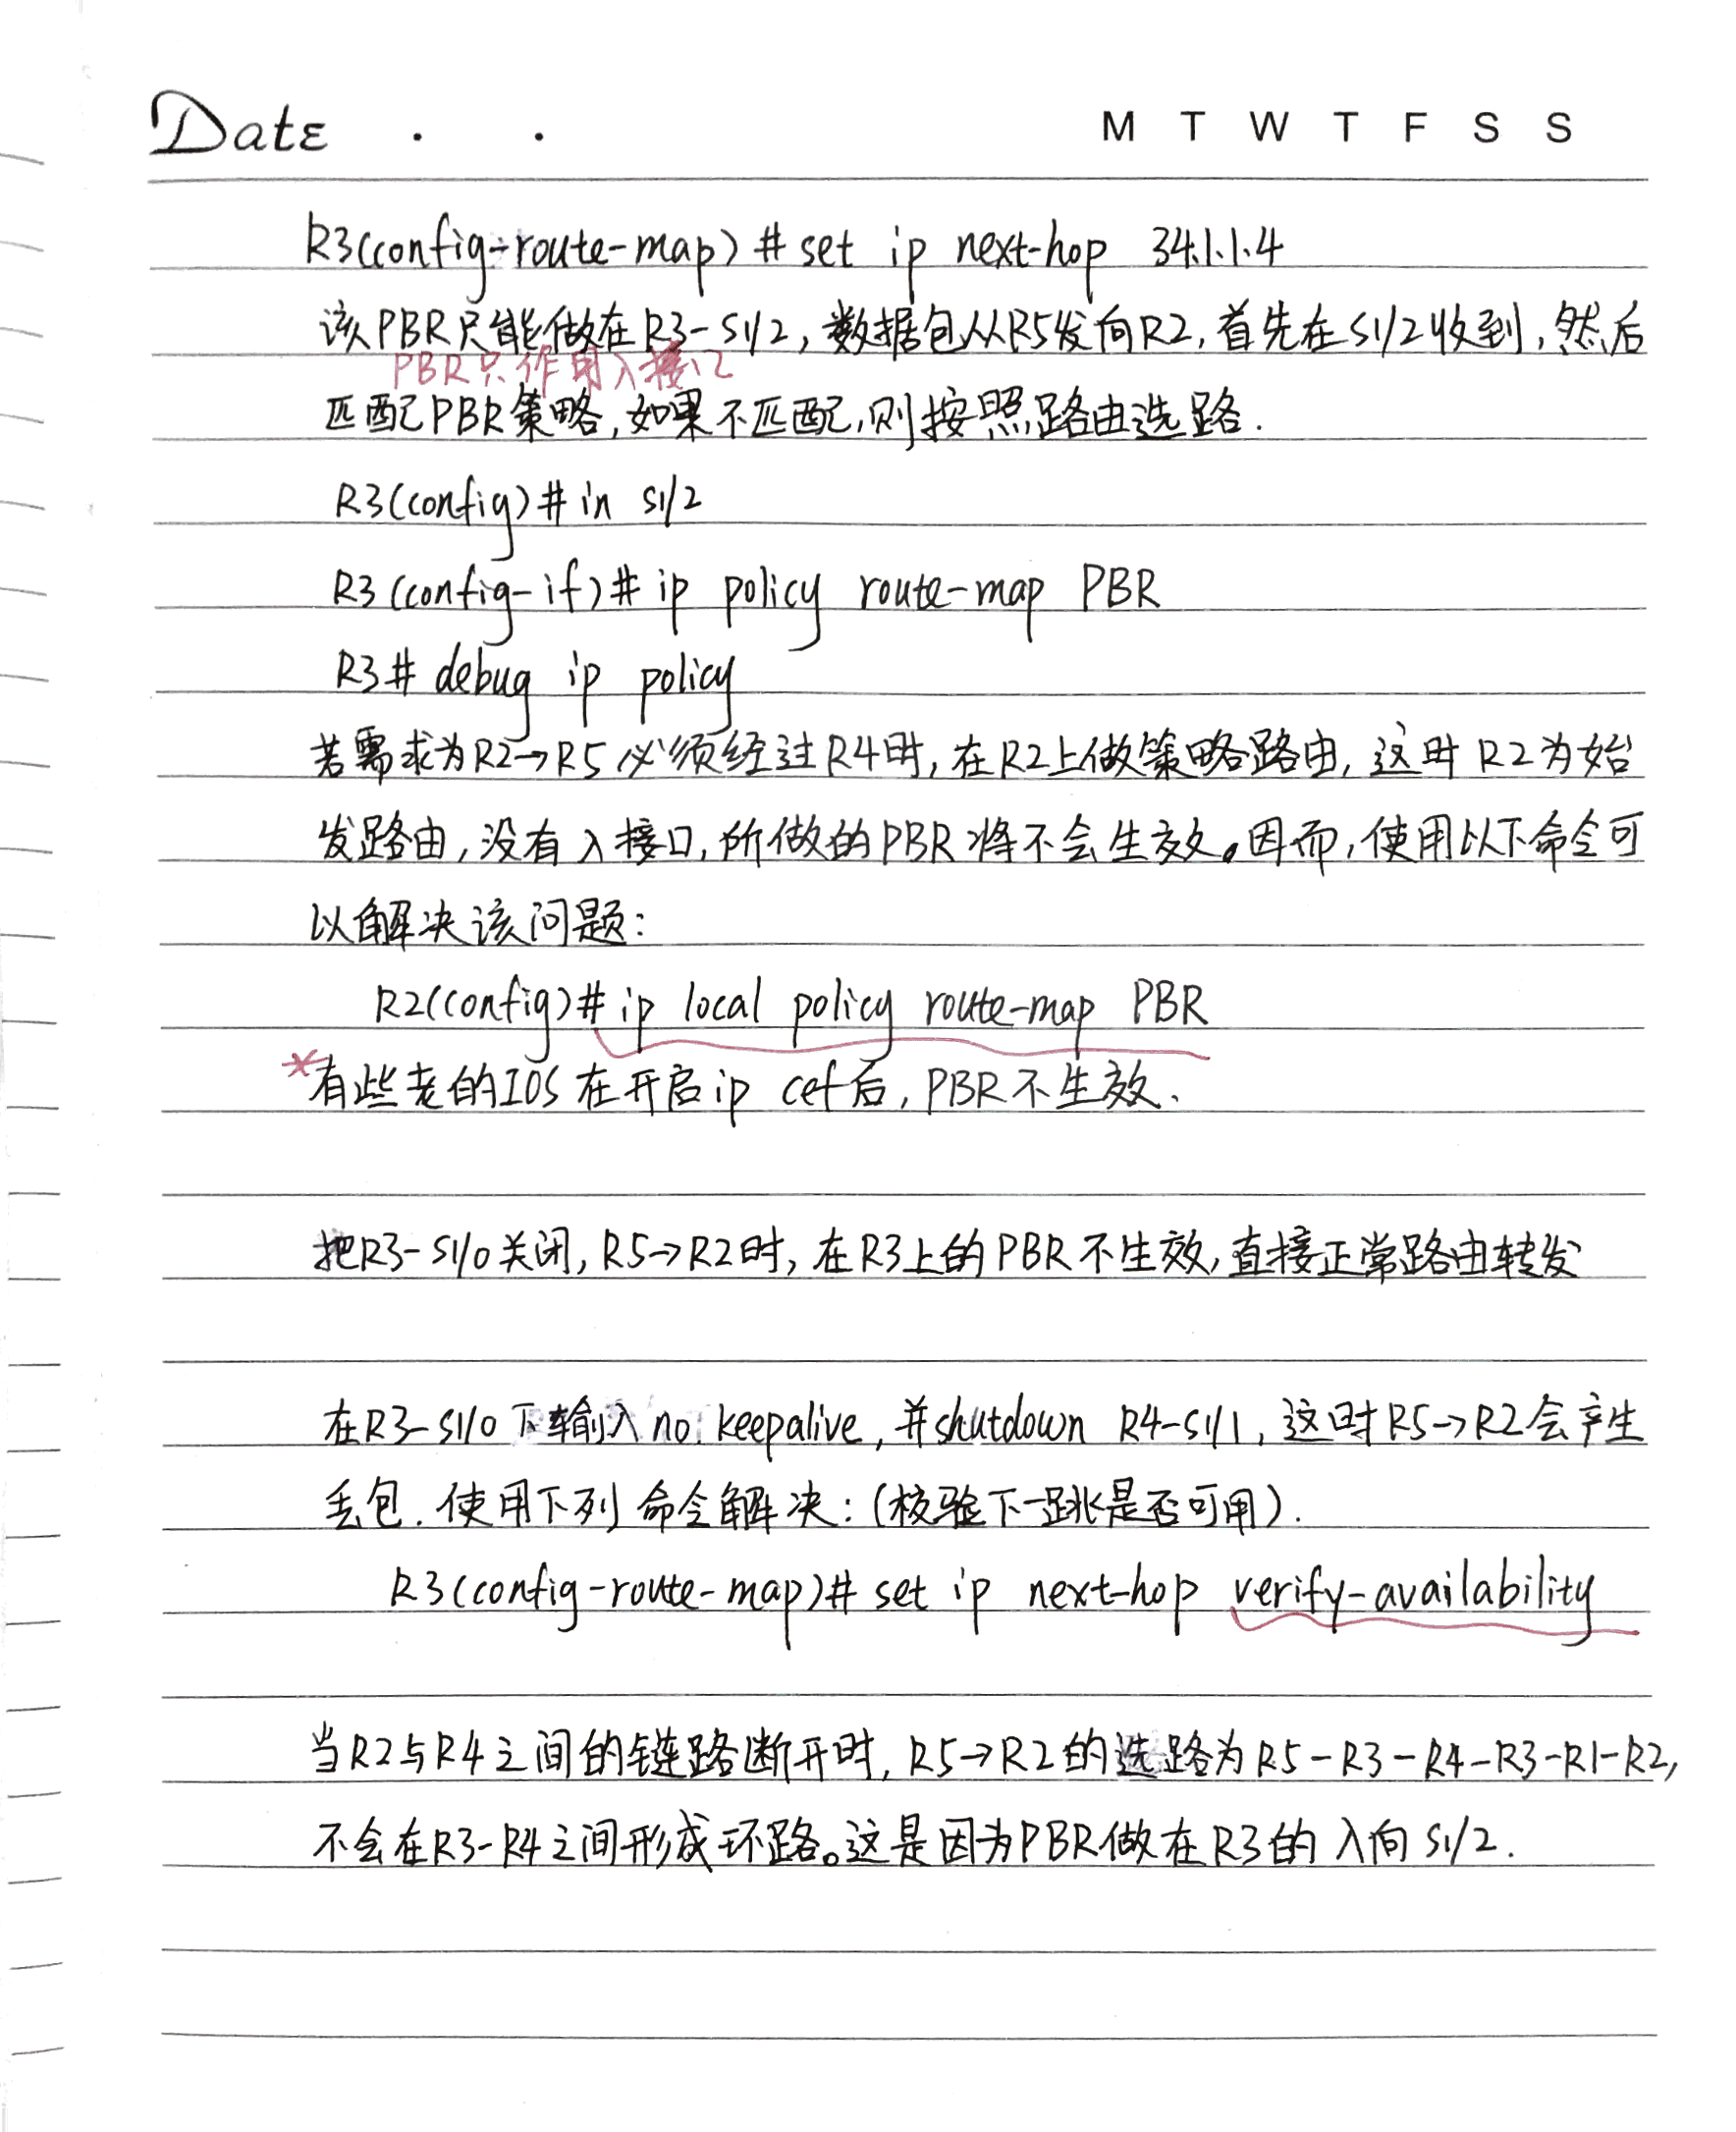 Date . . M T W T F S S
R3(config-route-map)# set ip next-hop 34.1.1.4
该PBR只能做在R3-S1/2,数据包从R5发向R2,首先在S1/2收到,然后
PBR只作用入接口
匹配PBR策略,如果不匹配,则按照路由选路.
R3(config)# in s1/2
R3(config-if)# ip policy route-map PBR
R3# debug ip policy
若需求为R2→R5必须经过R4时,在R2上做策略路由,这时R2为始
发路由,没有入接口,所做的PBR将不会生效。因而,使用以下命令可
以解决该问题:
R2(config)# ip local policy route-map PBR
*有些老的IOS在开启ip cef后,PBR不生效.
把R3-S1/0关闭,R5→R2时,在R3上的PBR不生效,直接正常路由转发
在R3-S1/0下输入no keepalive,并shutdown R4-S1/1,这时R5→R2会产生
丢包.使用下列命令解决:(校验下一跳是否可用).
R3(config-route-map)# set ip next-hop verify-availability
当R2与R4之间的链路断开时,R5→R2的选路为R5-R3-R4-R3-R1-R2,
不会在R3-R4之间形成环路。这是因为PBR做在R3的入向S1/2.